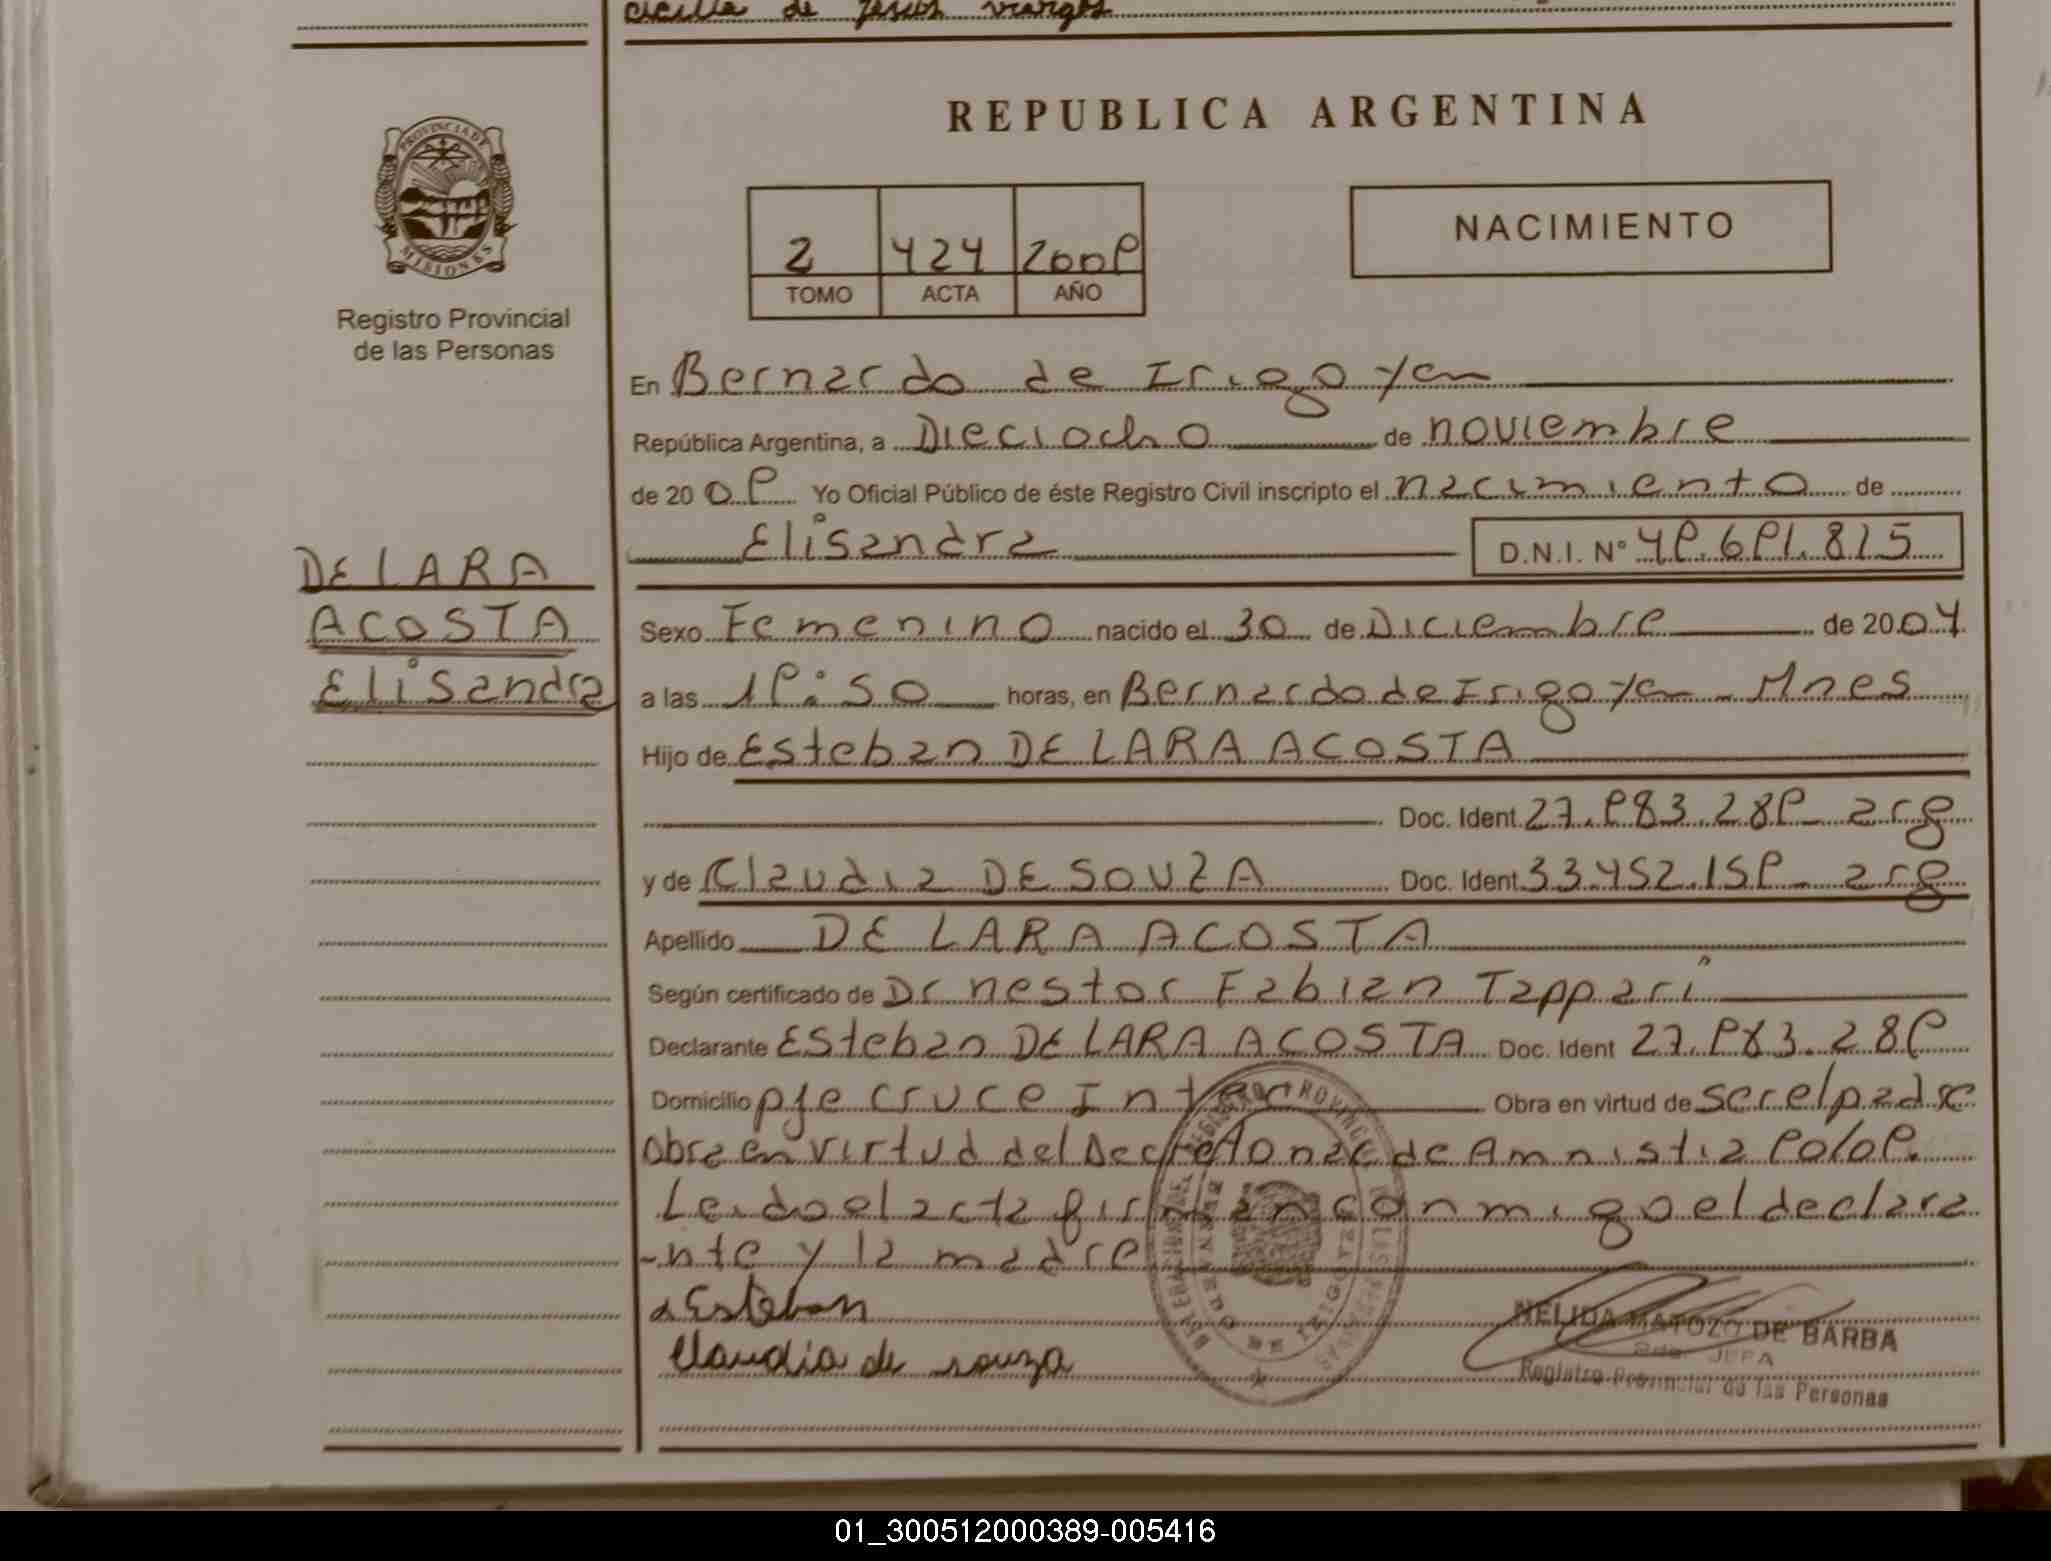 de Jesus Vargas
REPUBLICA ARGENTINA
PROVINCIA DE
MISIONES
Registro Provincial
de las Personas
NACIMIENTO
2 424 2009
TOMO ACTA AÑO
En Bernardo de Irigoyen
República Argentina, a Dieciocho de noviembre
de 2009 Yo Oficial Público de éste Registro Civil inscripto el nacimiento de
Elisandra D.N.I. Nº 49.691.815
DE LARA
ACOSTA
Elisandra
Sexo Femenino nacido el 30 de Diciembre de 2004
a las 19:50 horas, en Bernardo de Irigoyen - Mnes
Hijo de Esteban DE LARA ACOSTA
Doc. Ident. 27.983.289 - arg
y de Claudia DE SOUZA Doc. Ident. 33.452.159 - arg
Apellido DE LARA ACOSTA
Según certificado de Dr nestor Fabian Tappari
Declarante Esteban DE LARA ACOSTA Doc. Ident 27.983.289
Domicilio pje cruce Inter Obra en virtud de ser el padre
Obra en virtud del Decreto nac de Amnistia 90/09.
Leido el acta firman conmigo el declara
-nte y la madre
Esteban
Claudia de souza
NELIDA MATOZO DE BARBA
JEFA
Registro Provincial de las Personas
01_300512000389-005416